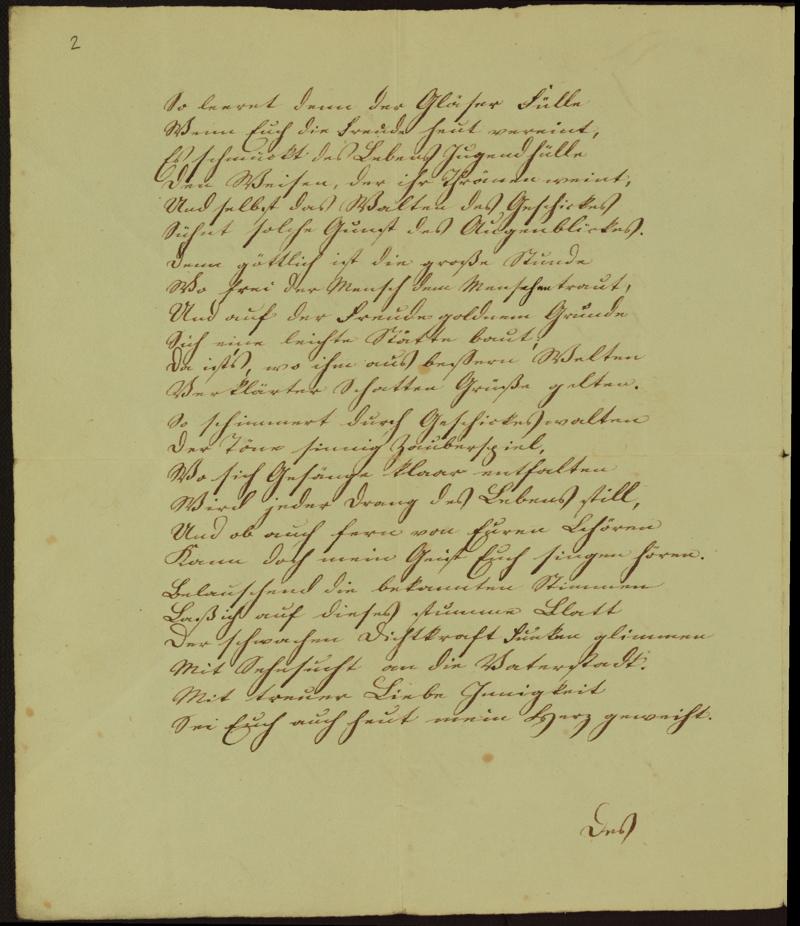 2
So leeret denn der Gläser Fülle
Wenn Euch die Freude heut vereint,
Es schmückt des Lebens Jugendhülle
Den Weisen, der ihr Thränen weint,
Und selbst das Walten des Geschickes
Sühnt solche Gunst des Augenblickes.
Denn göttlich ist die große Stunde
Wo frei der Mensch dem Menschen traut,
Und auf der Freude goldnem Grunde
Sich eine leichte Stätte baut;
Da ist's, wo ihm aus bessern Welten
Verklärter Schatten Grüße gelten.
So schimmert durch Geschickes walten
Der Töne sinnig Zauberspiel,
Wo sich Gesänge klaar entfalten
Wird jeder Drang des Lebens still,
Und ob auch fern von Euren Chören
Kann doch mein Geist Euch singen hören.
Belauschend die bekannten Stimmen
Laß ich auf dieses stumme Blatt
Der schwachen Dichtkraft Funken glimmen
Mit Sehnsucht an die Vaterstadt.
Mit treuer Liebe Innigkeit
Sei Euch auch heut mein Herz geweiht.
Des